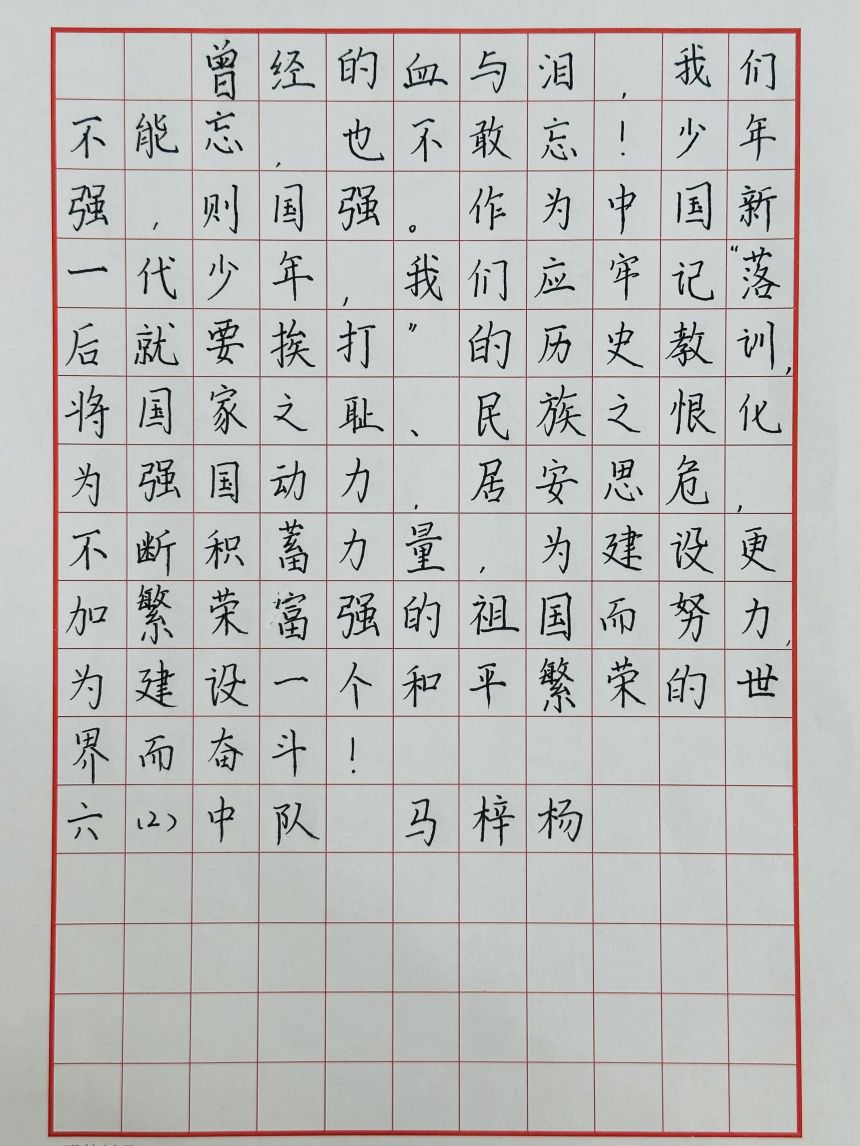 曾经的血与泪,我们
不能忘,也不敢忘!少年
强,则国强。作为中国新
一代少年,我们应牢记“落
后就要挨打”的历史教训,
将国家之耻、民族之恨化
为强国动力,居安思危,
不断积蓄力量,为建设更
加繁荣富强的祖国而努力,
为建设一个和平繁荣的世
界而奋斗!
六(2)中队 马梓杨